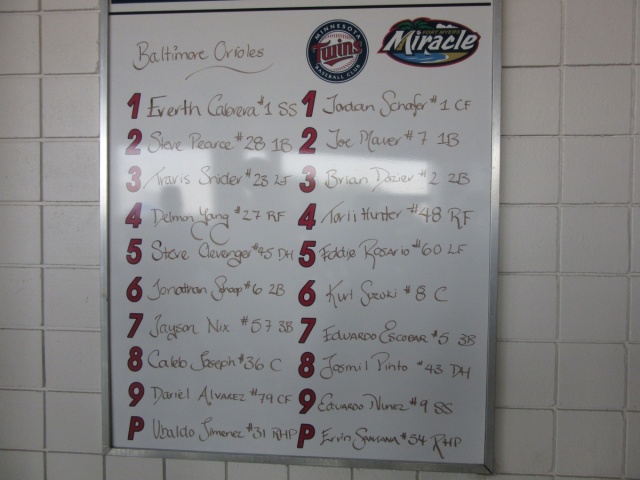 Baltimore Orioles
MINNESOTA Twins BASEBALL CLUB
FORT MYERS Miracle
1 Everth Cabrera #1 SS 1 Jordan Schafer #1 CF
2 Steve Pearce #28 1B 2 Joe Mauer #7 1B
3 Travis Snider #23 LF 3 Brian Dozier #2 2B
4 Delmon Yang #27 RF 4 Torii Hunter #48 RF
5 Steve Clevenger #45 DH 5 Eddie Rosario #60 LF
6 Jonathan Shoop #6 2B 6 Kurt Suzuki #8 C
7 Jayson Nix #57 3B 7 Eduardo Escobar #5 3B
8 Caleb Joseph #36 C 8 Josmil Pinto #43 DH
9 Dariel Alvarez #79 CF 9 Eduardo Nunez #9 SS
P Ubaldo Jimenez #31 RHP P Ervin Santana #54 RHP